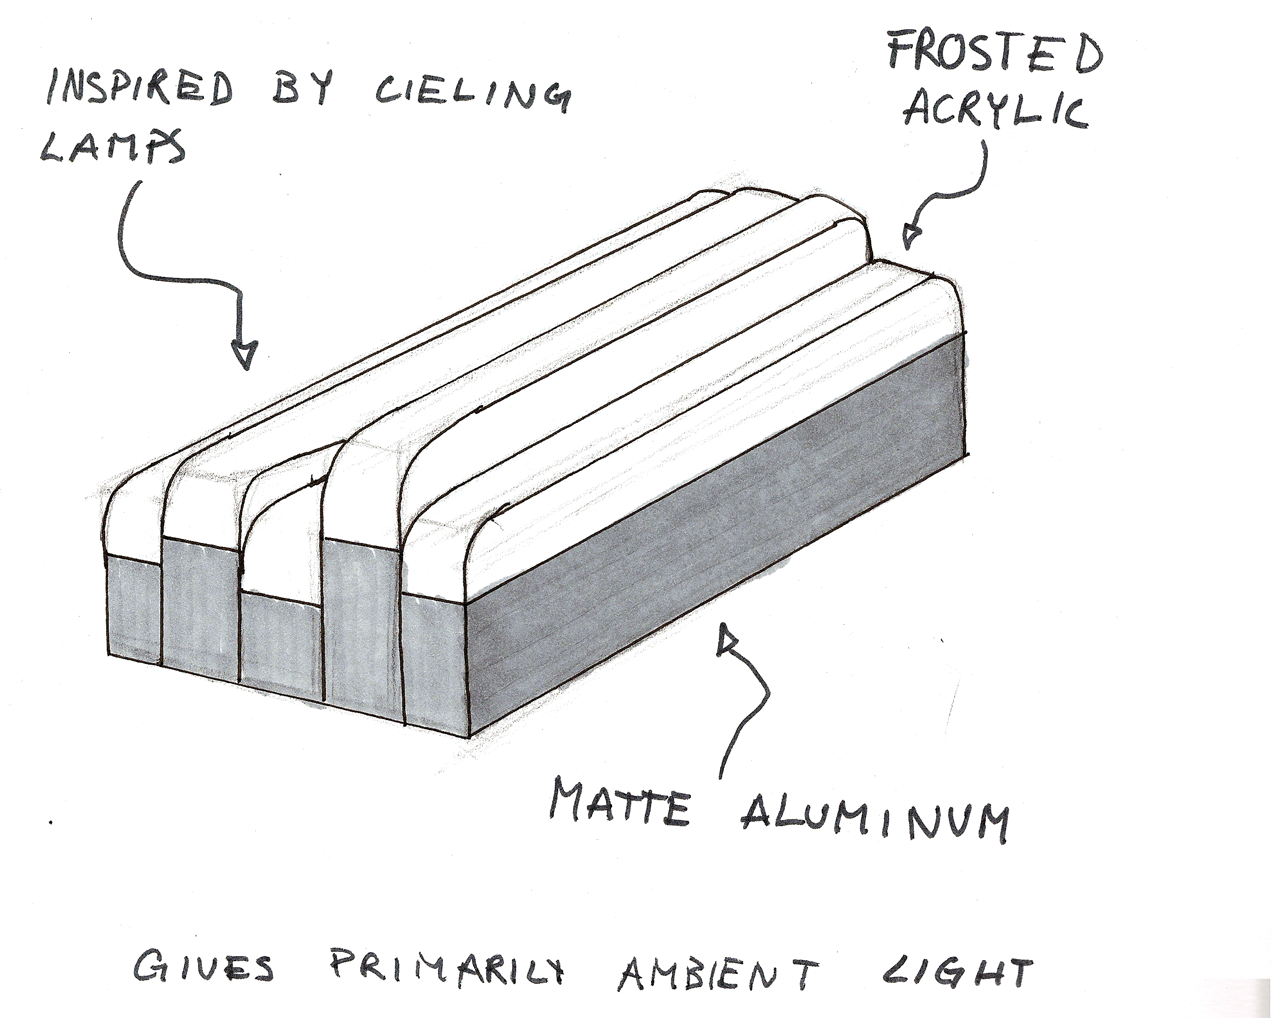 INSPIRED BY CIELING
LAMPS
FROSTED
ACRYLIC
MATTE ALUMINUM
GIVES PRIMARILY AMBIENT LIGHT